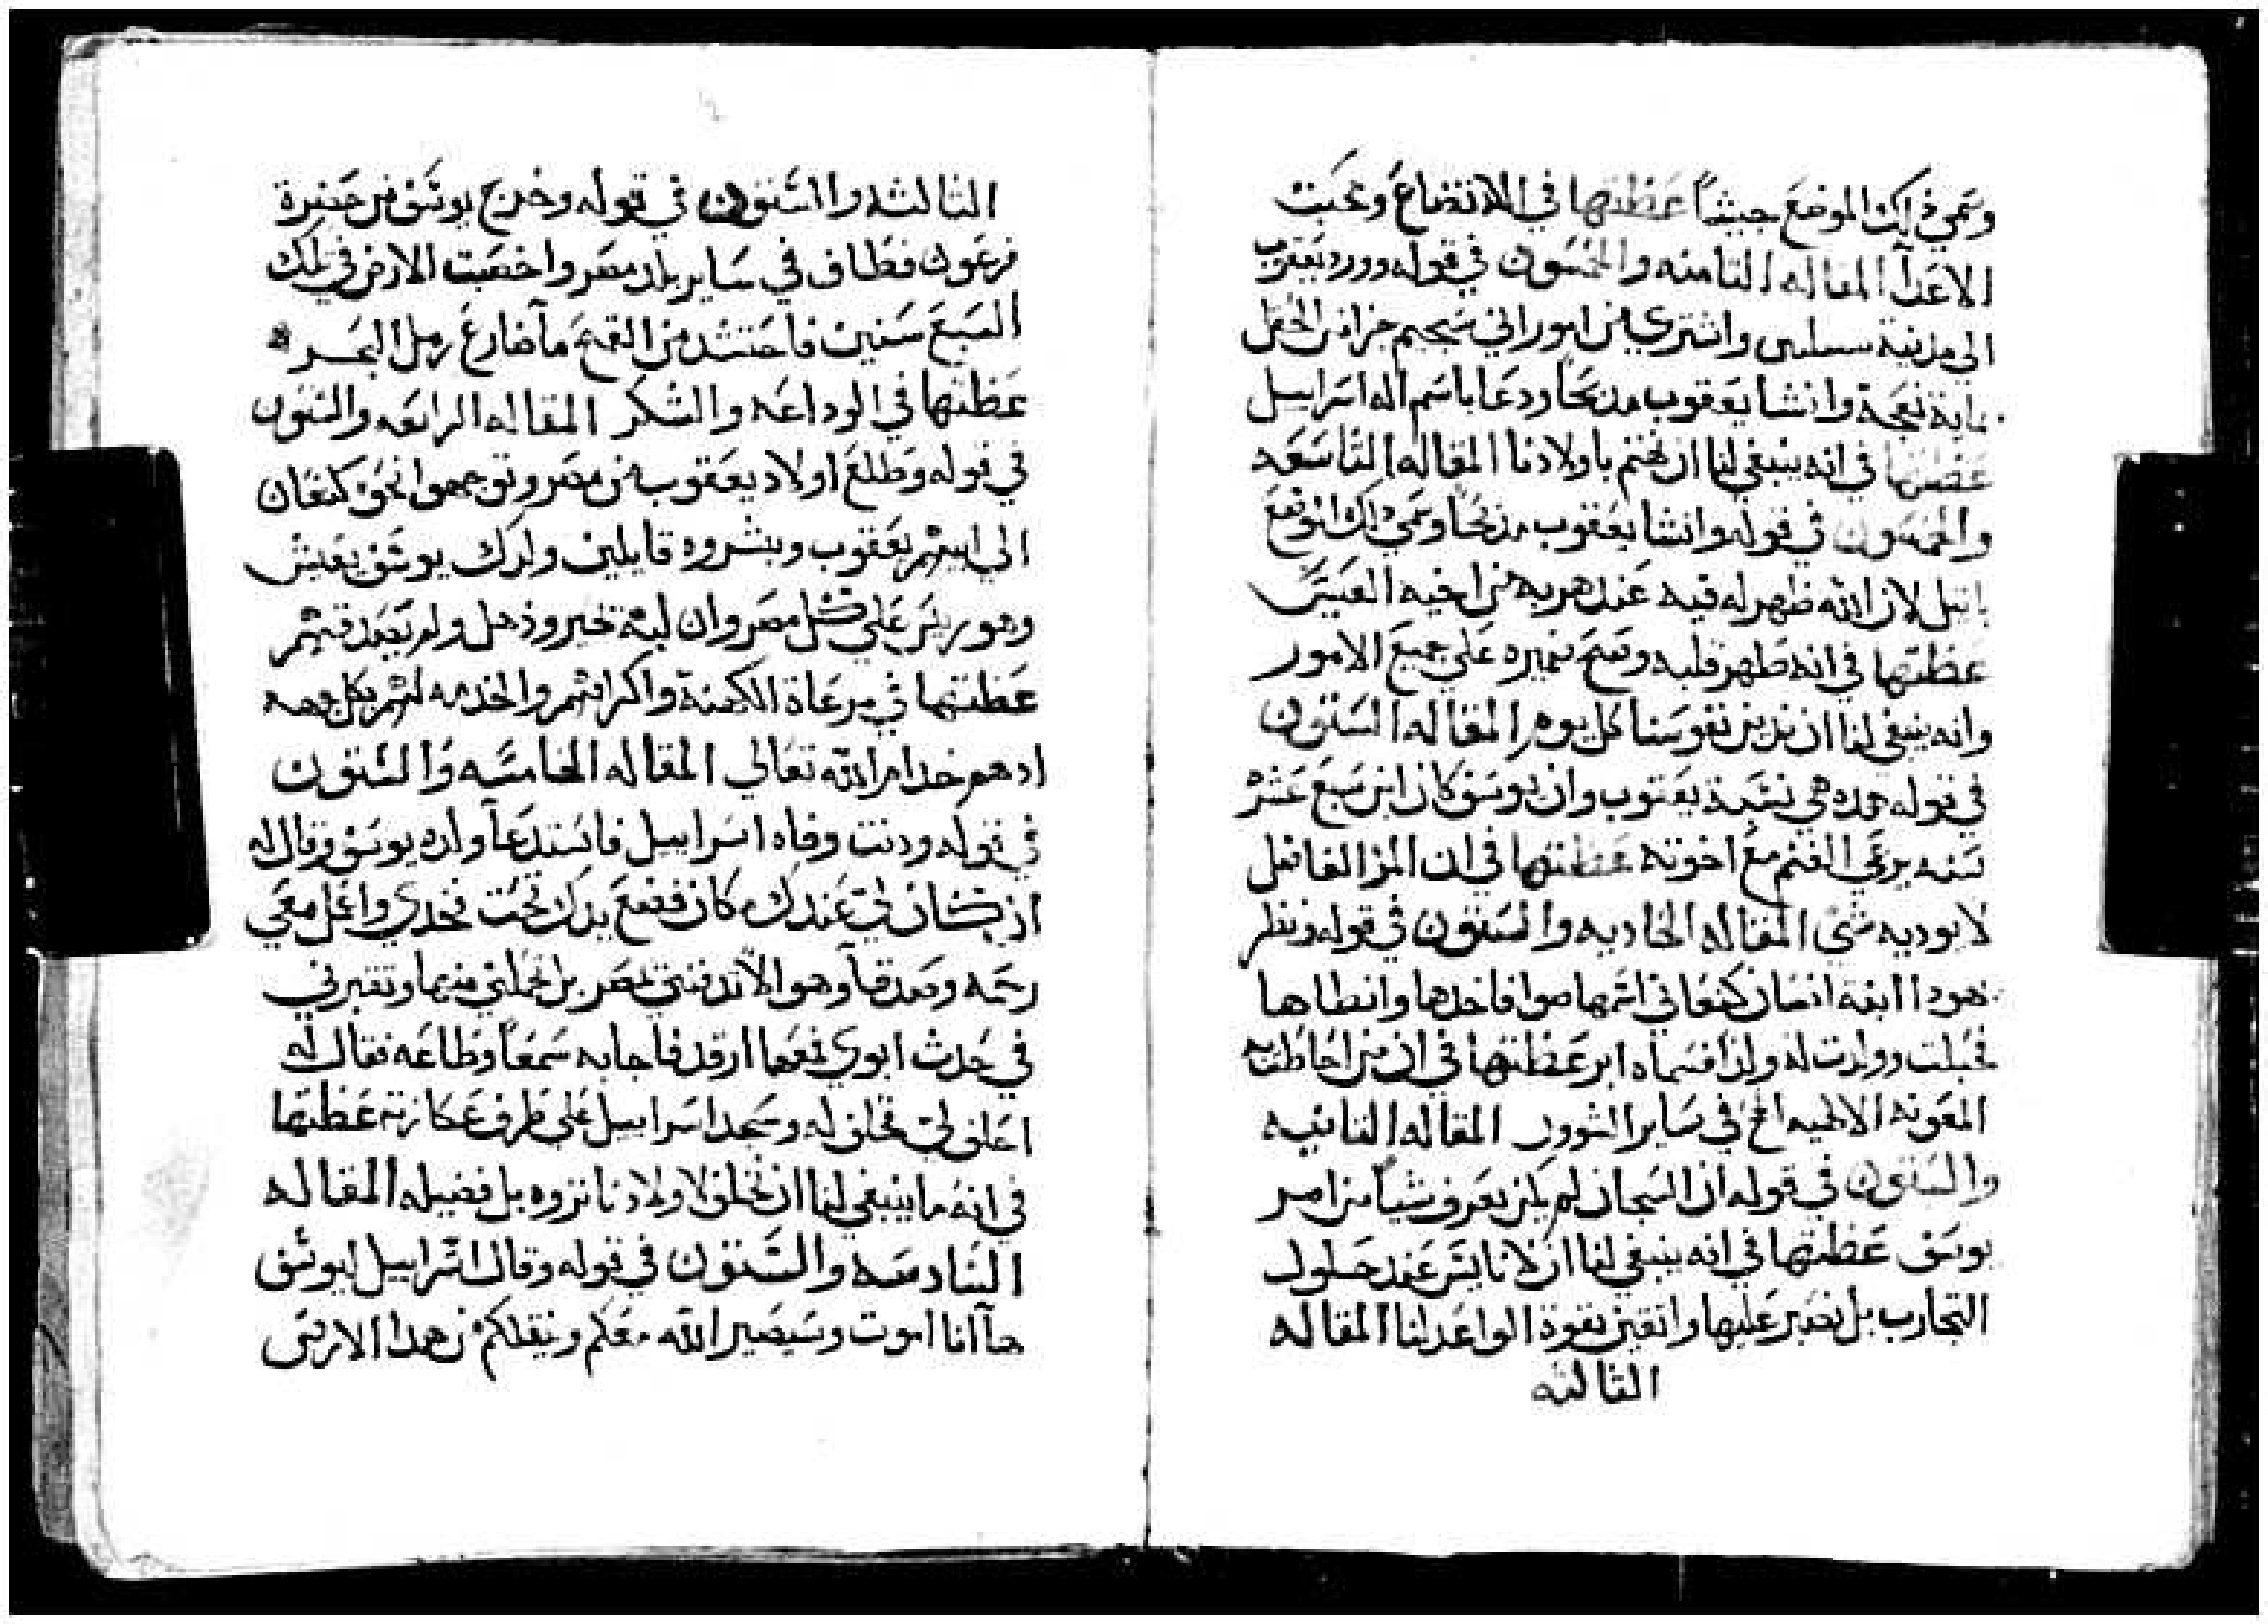 وسمي ذلك الموضع جيشاً عظتها في الاتضاع ومحبت
الاعدآ المقاله الثامنه والخمسون في قوله وورد يعقوب
الي مدينة سيليس واشتري من امور ابي شجيم جزا من الحقل
بماية نعجة وانشا يعقوب مدبحاً ودعا باسم اله اسراييل
عظتها في انه ينبغي لنا ان نهتم باولادنا المقاله التاسعه
والخمسون في قوله وانشا يعقوب مدبحاً وسمي ذلك الموضع
باتيل لان الله ظهر له فيه عند هربه من اخيه العيس
عظتها في انه طهر قلبه وفتح ضميره علي جميع الامور
وانه ينبغي لنا ان ندين نفوسنا كل يوم المقاله الستون
في قوله هده هي نسبة يعقوب وان يوسف كان ابن سبع عشر
سنه يرعي الغنم مع اخوته عظتها في ان المر الفاضل
لا يوديه شي المقاله الحاديه والستون في قوله ونظر
يهودا ابنة انسان كنعاني اسمها صوا فاخدها وانطاها
فحبلت وولدت له ولداً فسماه ابر عظتها في ان من احاطت به
المعونه الالهيه انجح في ساير الشوور المقاله الثانيه
والستون في قوله ان السجان لم يكن يعرف شياً من امر
يوسف عظتها في انه ينبغي لنا ان لا ناييس عند حلول
التجارب بل نصبر عليها واثقين بقوة الواعد لنا المقاله
الثالثه
الثالثه والستون في قوله وخرج يوسف من حضرة
فرعون فطاف في ساير بلد مصر واخصبت الارض في تلك
السبع سنين فاحتشد من القمح مآضارع رمل البحر
عظتها في الوداعه والشكر المقاله الرابعه والستون
في قوله وطلع اولاد يعقوب من مصر وتوجهوا نحو كنعان
الي ابيهم يعقوب وبشروه قايلين ولدك يوسف يعيش
وهو ريس علي كل مصر وان لبه تحير وذهل ولم يصدقهم
عظتها في مرعاة الكهنة واكرامهم والخدمه لهم بكل جهه
اد هم خدام الله تعالي المقاله الخامسه والستون
في قوله ودنت وفاه اسراييل فاستدعآ ولده يوسف وقال له
ان كان لي عندك مكان فضع يدك تحت فخدي واعمل معي
رحمه وصدقاً وهو الا تدفنني بمصر بل تحملني منها وتقبرني
في جدث ابوي فمعهما ارقد فاجابه سمعاً وطاعه فقال له
احلف لي فحلف له وسجد اسراييل علي طرف عكازته عظتها
في انه ما ينبغي لنا ان نخلف لاولادنا ثروه بل فضيله المقاله
السادسه والستون في قوله وقال اسراييل ليوسف
هآ انا اموت وسيصير الله معكم وينقلكم من هدا الارض